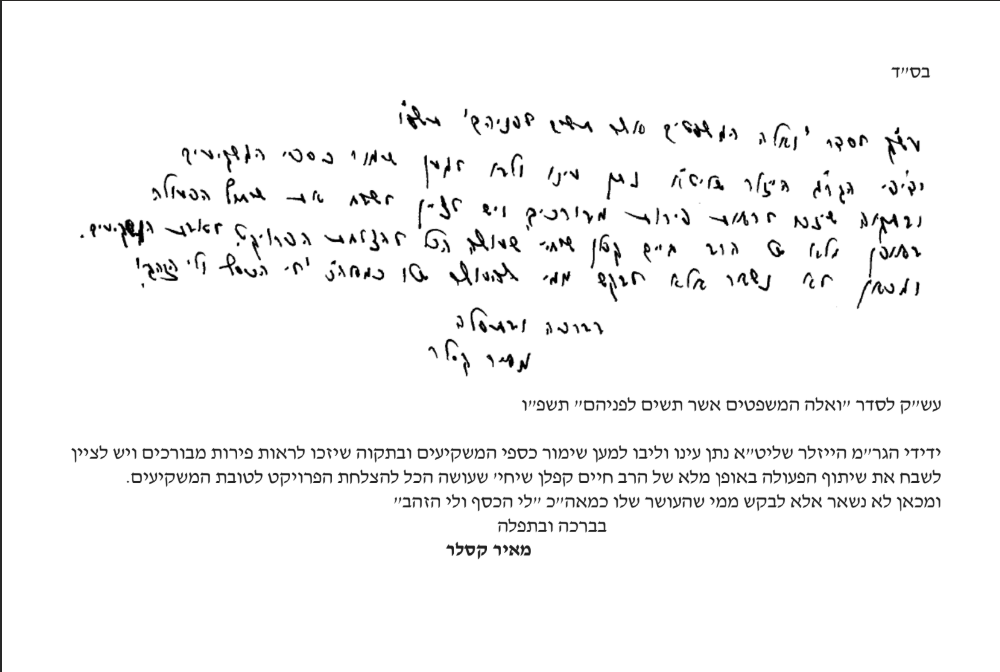 בס״ד
עש״ק לסדר "ואלה המשפטים אשר תשים לפניהם" תשפ״ו
ידידי הגר״מ הייזלר שליט״א נתן עינו וליבו למען שימור כספי המשקיעים
ובתקוה שיזכו לראות פירות מבורכים ויש לציין לשבח את שיתוף הפעולה
באופן מלא של הרב חיים קפלן שיחי' שעושה הכל להצלחת הפרויקט לטובת המשקיעים.
ומכאן לא נשאר אלא לבקש ממי שהעושר שלו כמאה״כ "לי הכסף ולי הזהב"
בברכה ובתפלה
מאיר קסלר
עש״ק לסדר ״ואלה המשפטים אשר תשים לפניהם״ תשפ״ו
ידידי הגר״מ הייזלר שליט״א נתן עינו וליבו למען שימור כספי המשקיעים ובתקוה שיזכו לראות פירות מבורכים ויש לציין
לשבח את שיתוף הפעולה באופן מלא של הרב חיים קפלן שיחי׳ שעושה הכל להצלחת הפרויקט לטובת המשקיעים.
ומכאן לא נשאר אלא לבקש ממי שהעושר שלו כמאה״כ ״לי הכסף ולי הזהב״
בברכה ובתפלה
מאיר קסלר